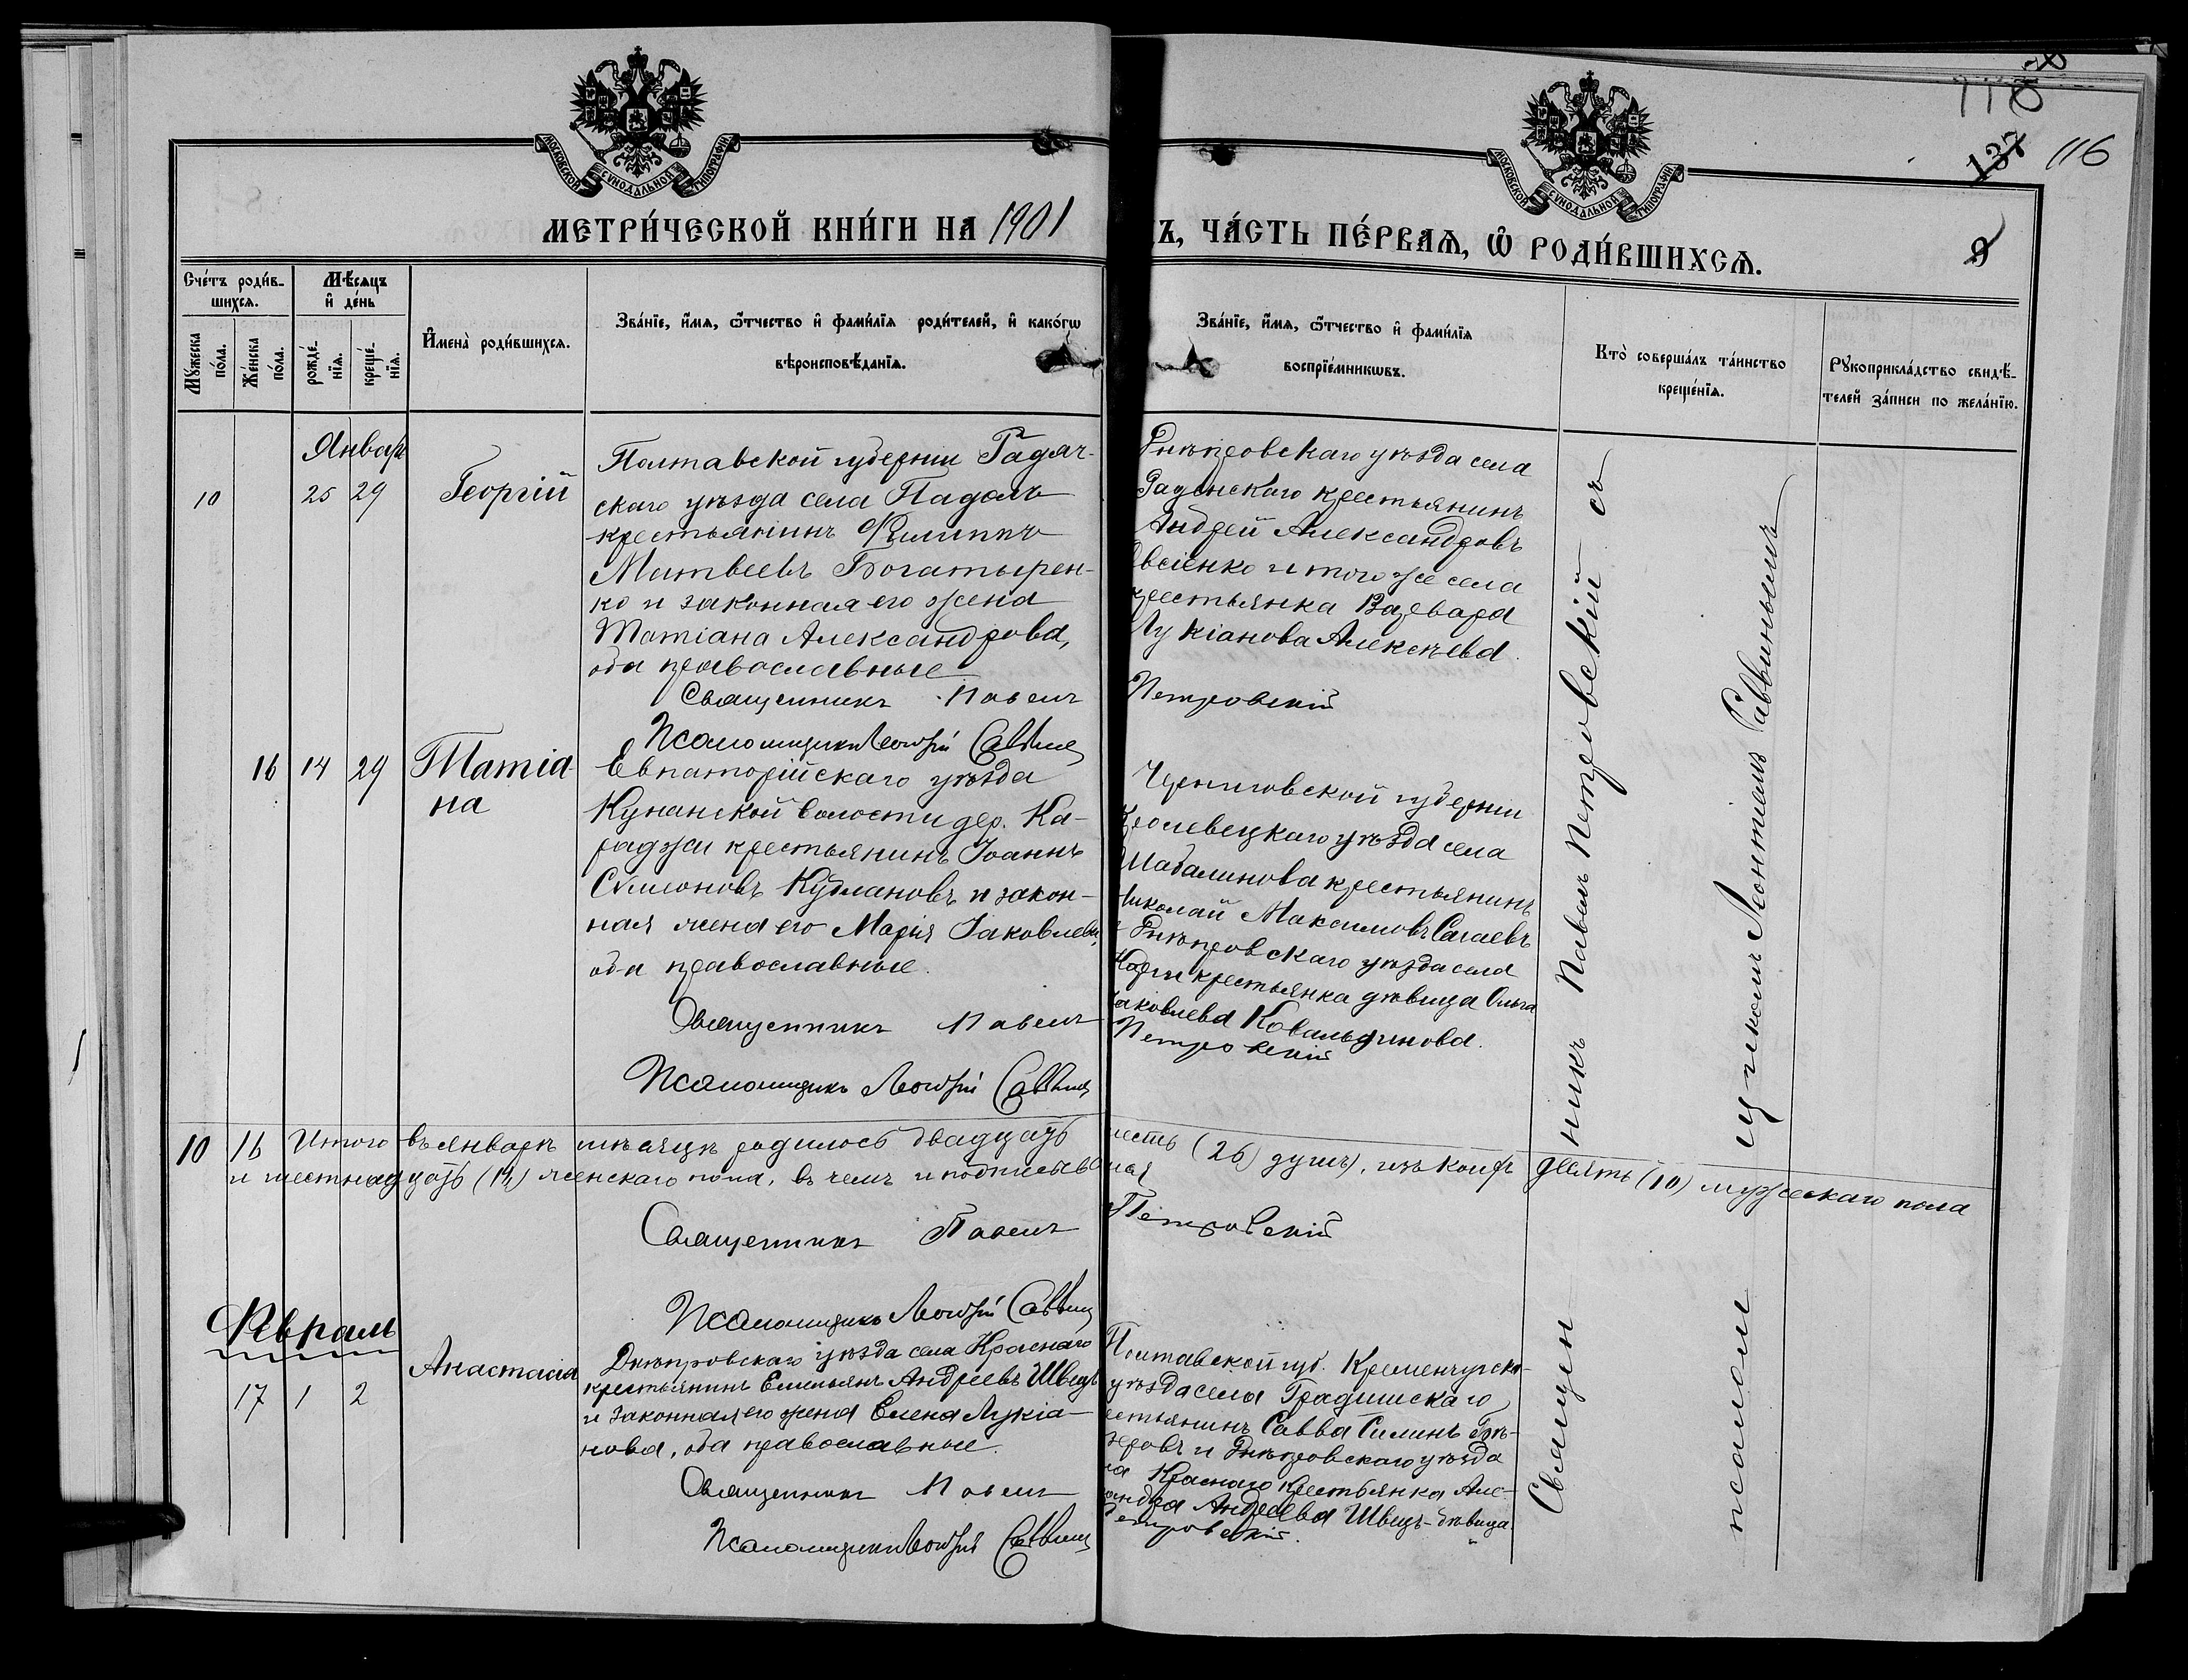 МОСКОВСКОЙ СѴНОДАЛЬНОЙ ТИПОГРАФІИ
МОСКОВСКОЙ СѴНОДАЛЬНОЙ ТИПОГРАФІИ
137 116
МЕТРИ́ЧЕСКОЙ КНИ́ГИ НА 1901
Ъ, ЧА́СТЬ ПЕ́РВАѦ, Ѽ РОДИ́ВШИХСѦ.
9
Сче́тъ роди́в-
шихсѧ.
Мѣ́сѧцъ
и҆ де́нь
Мꙋ́жеска
по́ла.
Же́нска
по́ла.
рожде́-
нїѧ.
креще́-
нїѧ.
И҆мена̀ роди́вшихсѧ.
Зва́нїе, и҆́мѧ, ѻ҆́тчество и҆ фами́лїѧ роди́телей, и҆ како́гѡ
вѣроисповѣ́данїѧ.
Зва́нїе, и҆́мѧ, ѻ҆́тчество и҆ фами́лїѧ
воспрїе́мникѡвъ.
Кто̀ соверша́лъ та́инство
креще́нїѧ.
Рꙋкоприкла́дство свидѣ́-
телей за́писи по жела́нїю.
Январ
10 25 29 Георгій
Полтавской губерніи Гадяч-
скаго уѣзда села Падолъ
крестьянинъ Филиппъ
Матвеевъ Богатырен-
ко и законная его жена
Татіана Александрова,
оба православные
Священникъ Павелъ
Псаломщикъ Леонтій Саввин
Днѣпровскаго уѣзда села
Раденскаго крестьянинъ
Андрей Александровъ
Овсіенко и того же села
крестьянка Варвара
Лукіанова Алексѣева.
Петровскій
16 14 29 Татіа-
на
Евпаторійскаго уѣзда
Кунанской волости дер. Ка-
раджи крестьянинъ Іоаннъ
Сѵмеоновъ Кудлановъ и закон-
ная жена его Марія Іаковлева,
оба православные.
Священникъ Павелъ
Псаломщикъ Леонтій Саввин
Черниговской губерніи
Кролевецкаго уѣзда села
Шабалинова крестьянинъ
Николай Максимовъ Сагаевъ
и Днѣпровскаго уѣзда села
крестьянка дѣвица Ольга
Іаковлева
Петровскій
10 16 Итого въ январѣ мѣсяцѣ родилось двадцать шесть (26) душъ, изъ коихъ десять (10) мужескаго пола
и шестнадцать (16) женскаго пола, въ чемъ и подписываемся
Священникъ Павелъ Петровскій
Псаломщикъ Леонтій Саввин
Февраль
17 1 2 Анастасія
Днѣпровскаго уѣзда села Краснаго
крестьянинъ Емельянъ Андреевъ Швецъ
и законная его жена Елена Лукіа-
нова, оба православные.
Священникъ Павелъ
Псаломщикъ Леонтій Саввин
Полтавской губ. Кременчугска-
уѣзда села Градишскаго
крестьянинъ Савва Силинъ
и Днѣпровскаго уѣзда
Краснаго крестьянка Алек-
сандра Андреева Швецъ-дѣвица.
Петровскій.
Священникъ Павелъ Петровскій съ
псаломщикомъ Леонтіемъ Саввинымъ